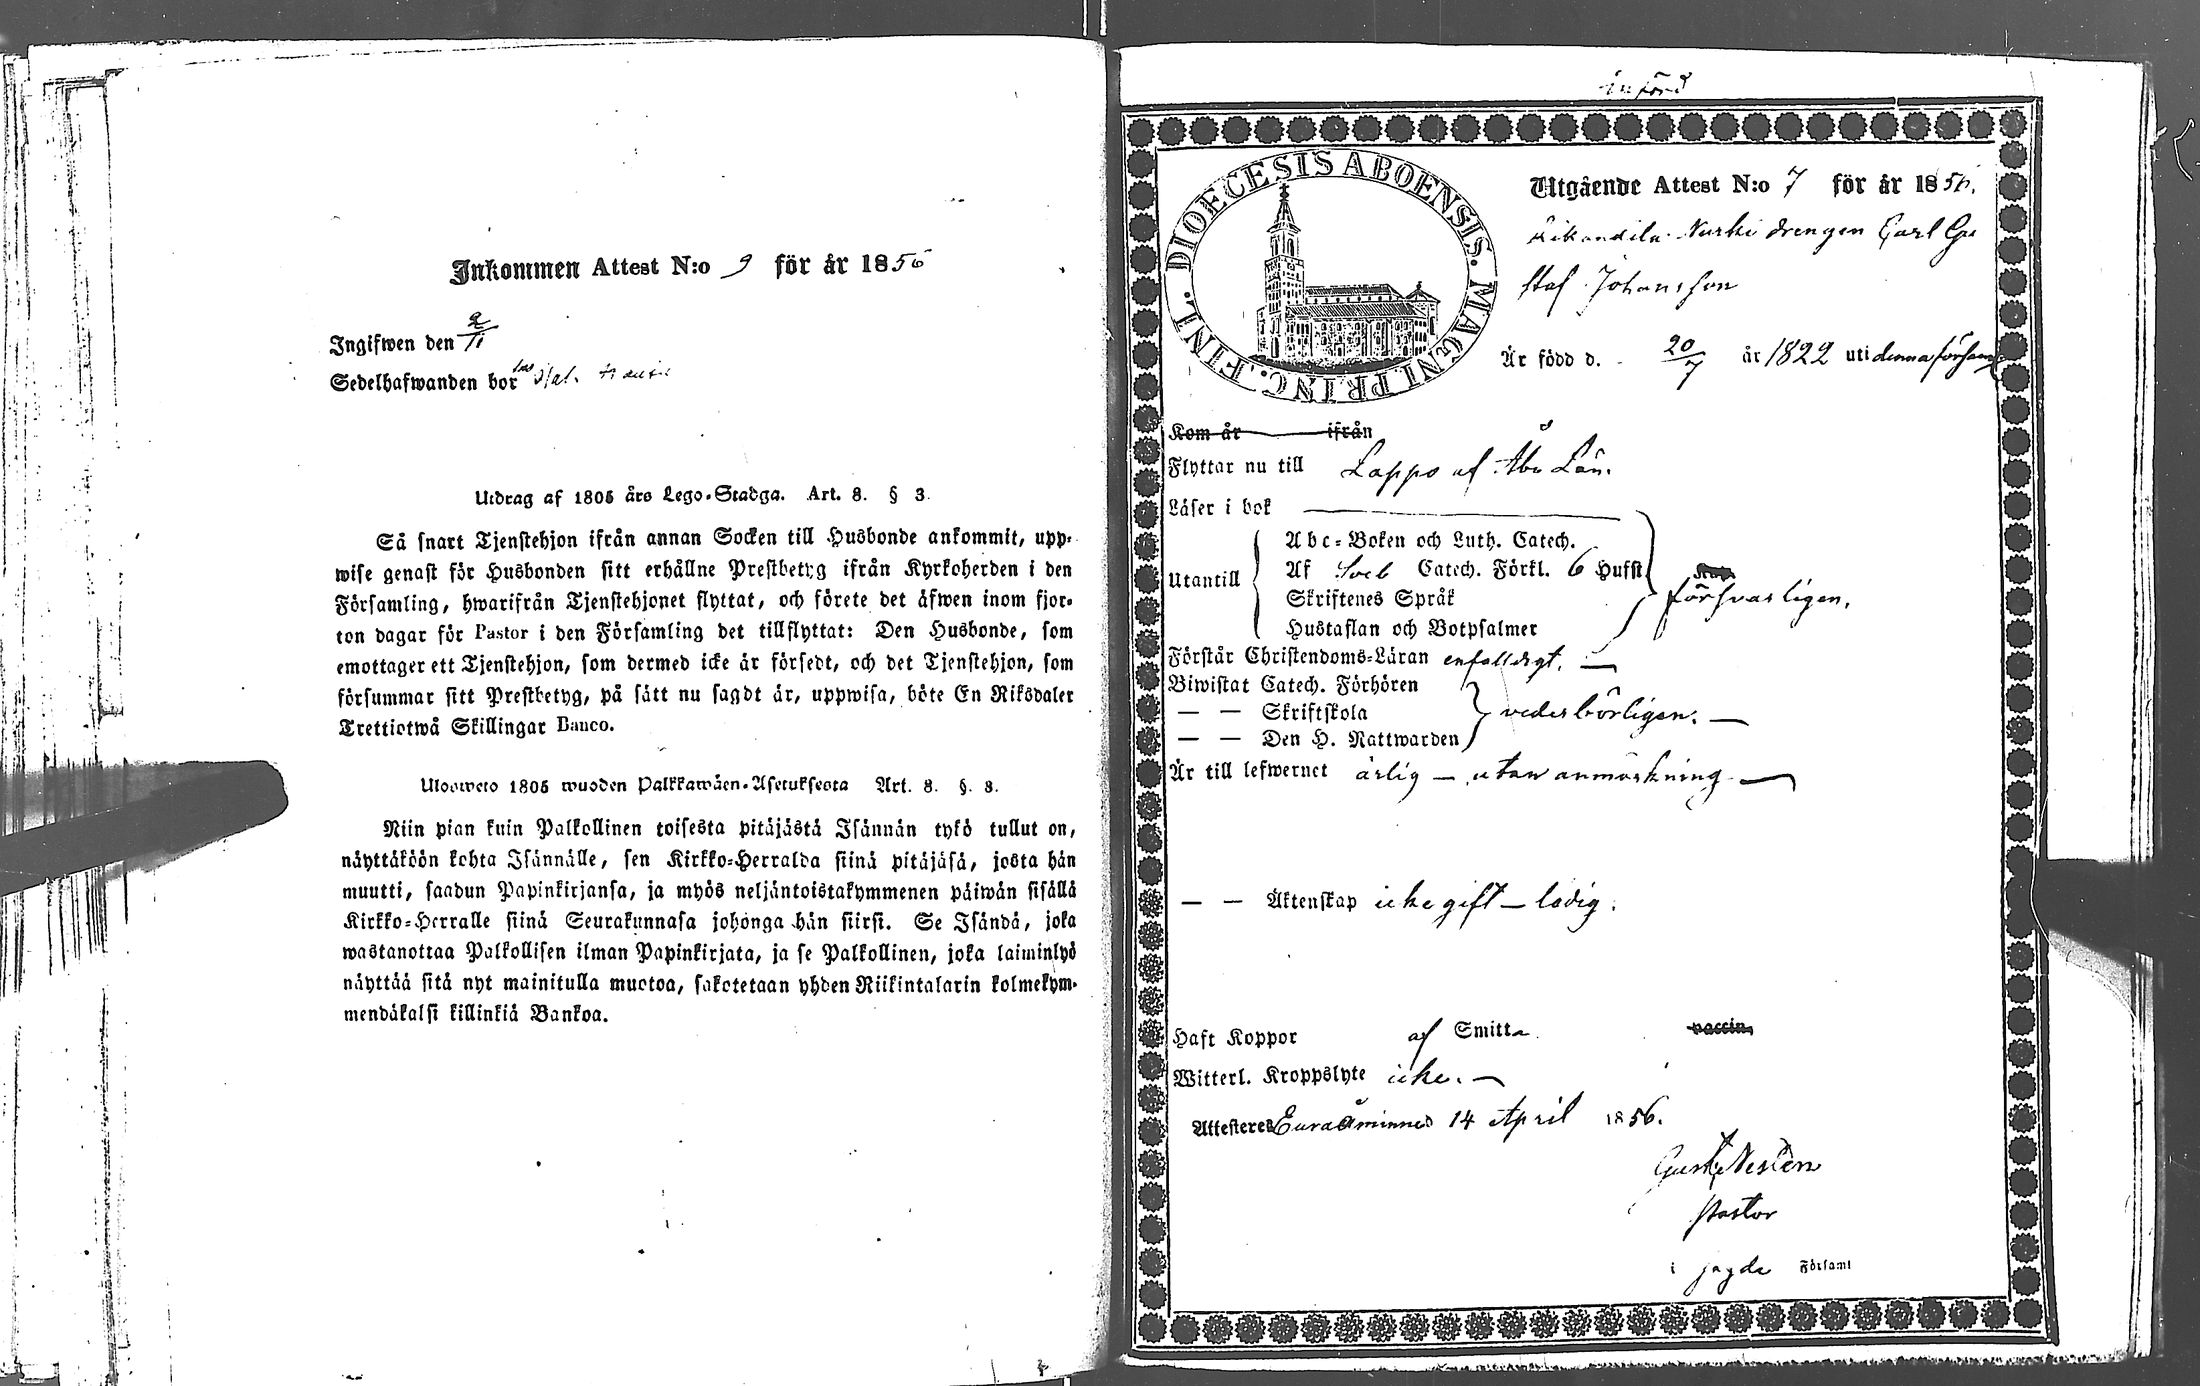 Inkommen Attest N:o 9 för år 1856
Ingifwen den 2/11
Sedelhafwanden bor
Utdrag af 1805 års Lego-Stadga. Art. 8. § 3.
Så snart Tjenstehjon ifrån annan Socken till Husbonde ankommit, upp-
wise genast för Husbonden sitt erhållne Prestbetyg ifrån Kyrkoherden i den
Församling, hwarifrån Tjenstehjonet flyttat, och förete det äfwen inom fjor-
ton dagar för Pastor i den Församling det tillflyttat: Den Husbonde, som
emottager ett Tjenstehjon, som dermed icke är försedt, och det Tjenstehjon, som
försummar sitt Prestbetyg, på sätt nu sagdt är, uppwisa, böte En Riksdaler
Trettiotwå Skillingar Banco.
Ulosweto 1805 wuoden Palkkawäen-Asetuksesta Art. 8. §. 3.
Niin pian kuin Palkollinen toisesta pitäjästä Isännän tykö tullut on,
näyttäköön kohta Isännälle, sen Kirkko-Herralda siinä pitäjäsä, josta hän
muutti, saadun Papinkirjansa, ja myös neljäntoistakymmenen päiwän sisällä
Kirkko-Herralle siinä Seurakunnasa johonga hän siirsi. Se Isändä, joka
wastanottaa Palkollisen ilman Papinkirjata, ja se Palkollinen, joka laiminlyö
näyttää sitä nyt mainitulla muotoa, sakotetaan yhden Riikintalarin kolmekym-
mendäkalsi killinkiä Bankoa.
införd
DIOECESIS ABOENSIS. MAGNI PRINC. FINL.
Utgående Attest N:o 7 för år 1856.
Nurki drengen Carl Gu
staf Johansson
Är född d. 20/7 år 1822 uti denna försam
Kom år ifrån
Flyttar nu till Lappo af Åbo Län.
Läser i bok
Utantill
Abc-Boken och Luth. Catech.
Af Sveb Catech. Förkl. 6 Hufst
Skriftenes Språk
Hustaflan och Botpsalmer
försvarligen.
Förstår Christendoms-Läran enfaldigt.
Biwistat Catech. Förhören
— — Skriftskola
— — Den H. Nattwarden
vederbörligen.
Är till lefwernet ärlig — utan anmärkning
— — Äktenskap icke gift — ledig.
Haft Koppor af Smitta vaccin.
Witterl. Kroppslyte icke.
Attesteres Euraåminne d 14 April 1856.
Gust. Neslèn
Pastor
i sagde Församl